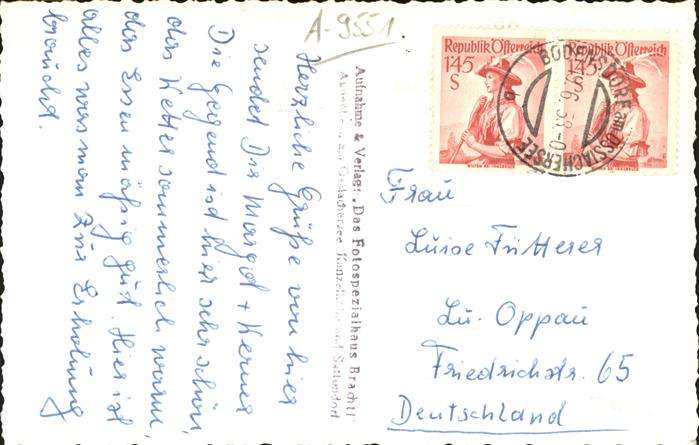 A-9551
Herzliche Grüße von hier
sendet Dir Margot + Werner
Die Gegend ist hier sehr schön,
das Wetter sommerlich warm,
das Essen mäßig gut. Hier ist
alles was man zur Erholung
braucht.
Aufnahme & Verlag: „Das Fotospezialhaus Bracht!"
Ossiachersee, Kanzelhöhe und Sattendorf
Republik Österreich
1'45
S
Republik Österreich
1'45
S
BODENSDORF am OSSIACHERSEE
Frau
Luise Fütterer
Lu. Oppau
Friedrichstr. 65
Deutschland